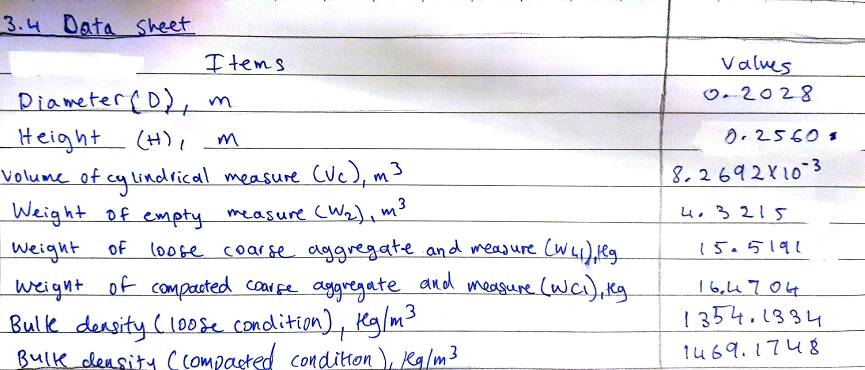 3.4 Data Sheet
Items Values
Diameter (D), m 0.2028
Height (H), m 0.2560
Volume of cylindrical measure (Vc), m³ 8.2692x10⁻³
Weight of empty measure (W2), m³ 4.3215
Weight of loose coarse aggregate and measure (WL1), kg 15.5191
Weight of compacted coarse aggregate and measure (WC1), kg 16.4704
Bulk density (loose condition), kg/m³ 1354.1334
Bulk density (compacted condition), kg/m³ 1469.1748